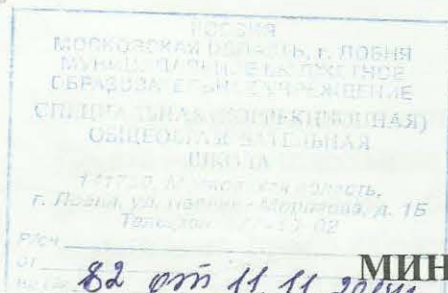 РОССИЯ
МОСКОВСКАЯ ОБЛАСТЬ, г. ЛОБНЯ
МУНИЦИПАЛЬНОЕ БЮДЖЕТНОЕ
ОБРАЗОВАТЕЛЬНОЕ УЧРЕЖДЕНИЕ
СПЕЦИАЛЬНАЯ (КОРРЕКЦИОННАЯ)
ОБЩЕОБРАЗОВАТЕЛЬНАЯ
ШКОЛА
Московская область,
г. Лобня, ул. д. 1Б
Телефон
Р/сч.
от
82 от 11.11
МИН